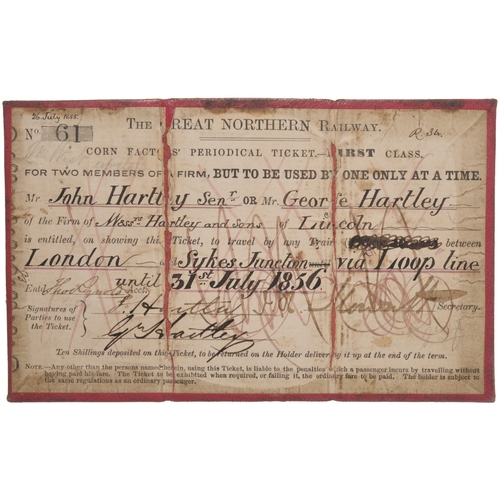 26 July 1855.
No. 61
THE GREAT NORTHERN RAILWAY.
R. 34.
CORN FACTORS' PERIODICAL TICKET.—FIRST CLASS.
FOR TWO MEMBERS OF A FIRM, BUT TO BE USED BY ONE ONLY AT A TIME.
Mr John Hartley Senr OR Mr. George Hartley
of the Firm of Messrs Hartley and Sons of Lincoln
is entitled, on showing this Ticket, to travel by any Train between
London and Sykes Junction via Loop line
until 31st July 1856
Entd. Acct.
Secretary.
Signatures of
Parties to use
the Ticket.
J. Hartley Sr.
Geo Hartley
Ten Shillings deposited on this Ticket, to be returned on the Holder delivering it up at the end of the term.
NOTE.—Any other than the persons named herein, using this Ticket, is liable to the penalties which a passenger incurs by travelling without
having paid his fare. The Ticket to be exhibited when required, or failing it, the ordinary fare to be paid. The holder is subject to
the same regulations as an ordinary passenger.